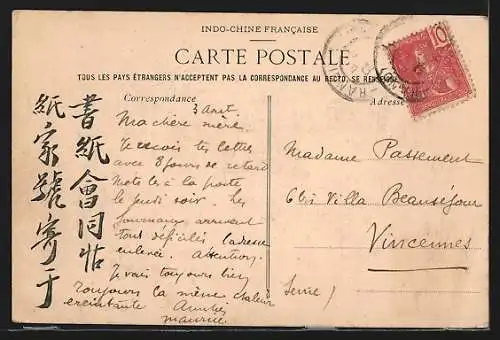 INDO-CHINE FRANÇAISE
CARTE POSTALE
TOUS LES PAYS ÉTRANGERS N'ACCEPTENT PAS LA CORRESPONDANCE AU RECTO, SE RENSEIGNER
Correspondance
Adresse
10
3 Août
Ma chère mère,
Je reçois tes lettres
avec 8 jours de retard
Mets les à la poste
le jeudi soir. Les
arrivent
tout
Attention.
Je vais toujours bien
toujours la même chaleur
éreintante
Maurice
Madame Passement
6 bis Villa Beauséjour
Vincennes
Seine
書紙會同帖
紙家號寄于